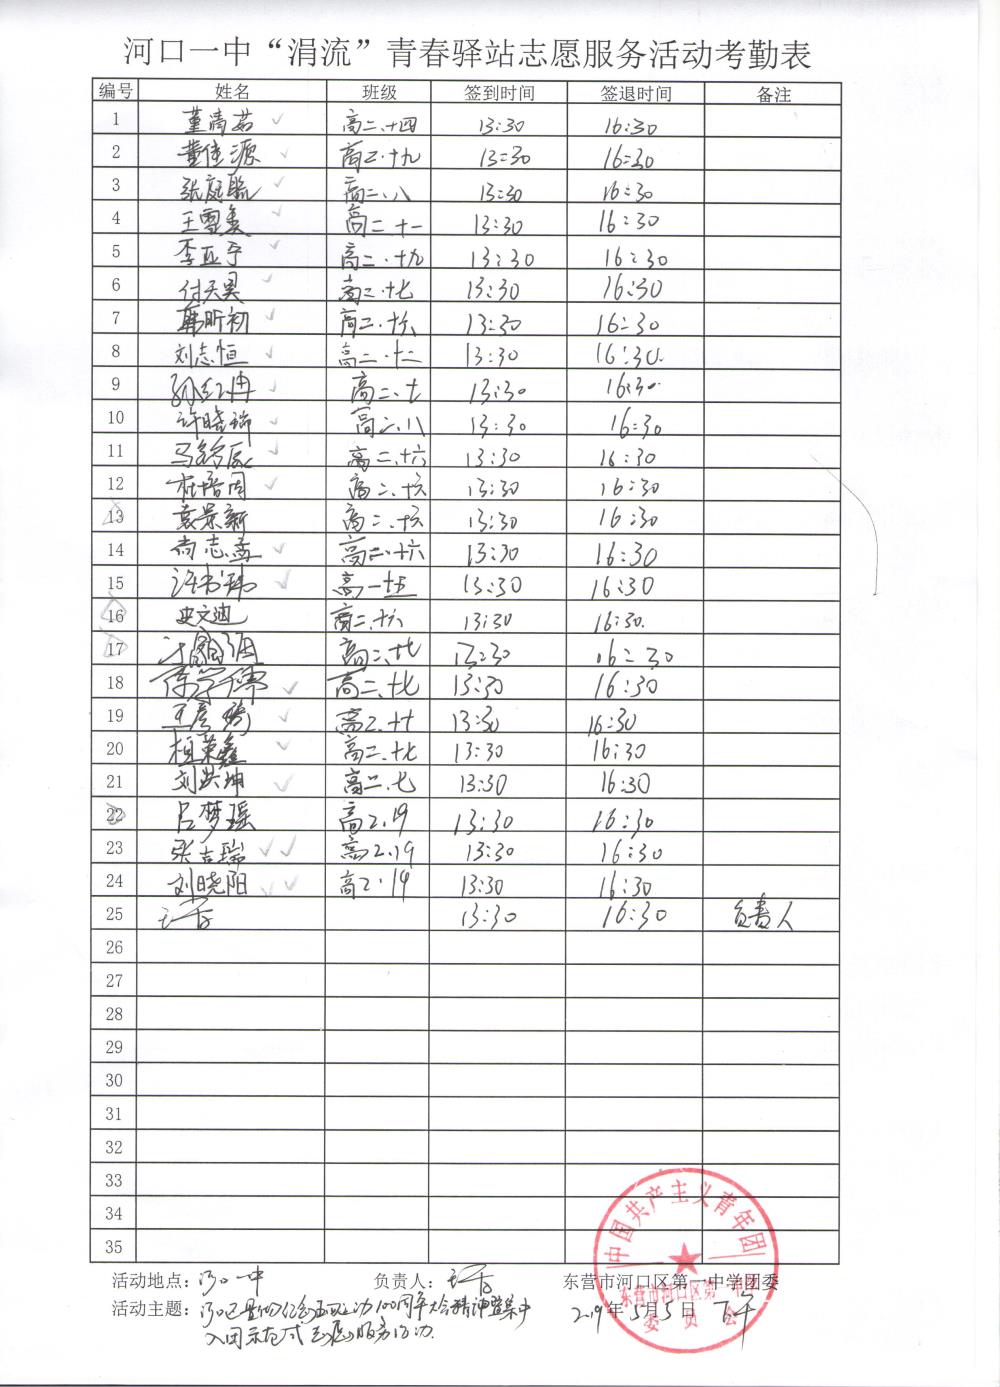 河口一中“涓流”青春驿站志愿服务活动考勤表
编号 姓名 班级 签到时间 签退时间 备注
1 董清茹 高二.十四 13:30 16:30
2 董佳源 高二.十九 13:30 16:30
3 张庭毓 高二.八 13:30 16:30
4 王雪美 高二十一 13:30 16:30
5 李亚宁 高二.十九 13:30 16:30
6 付天昊 高二.十七 13:30 16:30
7 韩昕初 高二.十六 13:30 16:30
8 刘志恒 高二.十二 13:30 16:30.
9 高二.七 13:30 16:30
10 许晓瑞 高二.八 13:30 16:30
11 高二.十六 13:30 16:30
12 杜培周 高二.十六 13:30 16:30
13 袁景新 高二.十六 13:30 16:30
14 尚志孟 高二.十六 13:30 16:30
15 许书玮 高一十五 13:30 16:30
16 史文迪 高二.十六 13:30 16:30.
17 高二.十七 13:30 16:30
18 高二.十七 13:30 16:30
19 王彦 高二.十七 13:30 16:30
20 荣鑫 高二.十七 13:30 16:30
21 刘洪坤 高二.七 13:30 16:30
22 吕梦瑶 高2.19 13:30 16:30
23 张吉瑞 高2.19 13:30 16:30
24 刘晓阳 高2.19 13:30 16:30
25 13:30 16:30 负责人
26
27
28
29
30
31
32
33
34
35
中国共产主义青年团
活动地点：河口一中 负责人： 东营市河口区第一中学团委
东营市河口区第一中学
活动主题：河口区纪念五四运动100周年大会精神暨集中 2019年5月5日 下午
入团示范式志愿服务活动.
委员会